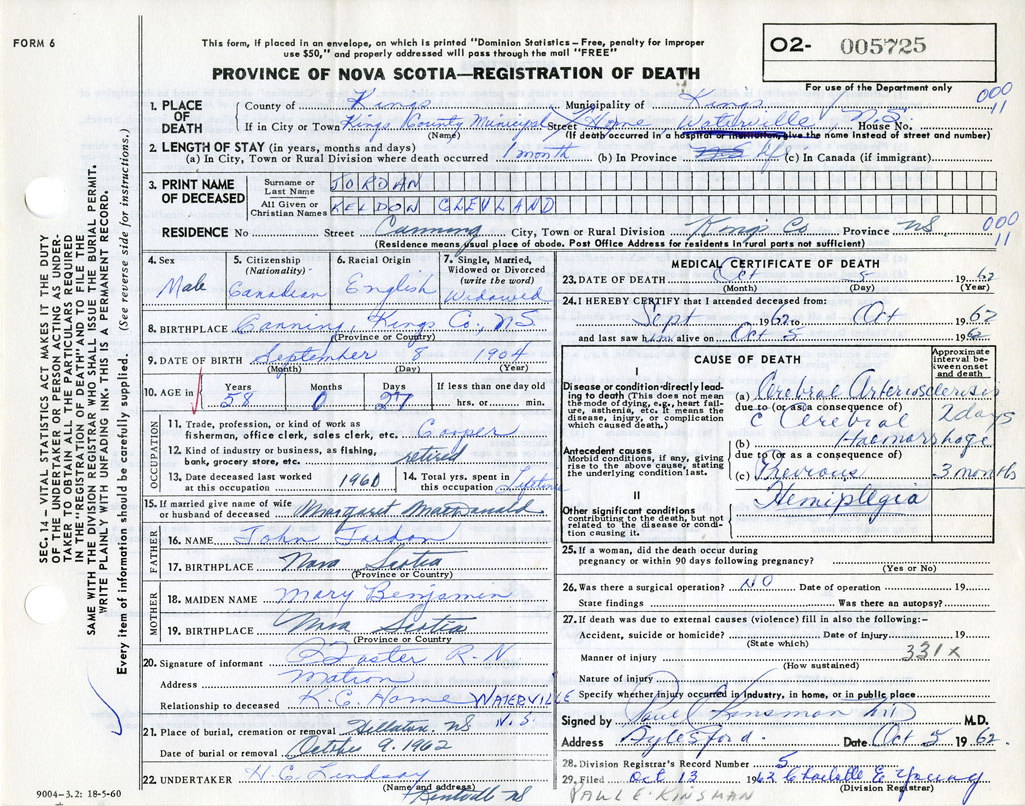 FORM 6
This form, if placed in an envelope, on which is printed "Dominion Statistics – Free, penalty for improper
use $50," and properly addressed will pass through the mail "FREE"
PROVINCE OF NOVA SCOTIA—REGISTRATION OF DEATH
O2- 005725
For use of the Department only
000
11
1. PLACE OF DEATH
County of Kings Municipality of Kings
If in City or Town Kings County Municipal Street Home Waterville House No. N.S.
(Name) (If death occurred in a hospital or institution, give the name instead of street and number)
2. LENGTH OF STAY (in years, months and days)
(a) In City, Town or Rural Division where death occurred 1 month (b) In Province life (c) In Canada (if immigrant)
3. PRINT NAME OF DECEASED
Surname or Last Name JORDAN
All Given or Christian Names KELDON CLEVLAND
RESIDENCE No Street Canning City, Town or Rural Division Kings Co Province NS
000
11
(Residence means usual place of abode. Post Office Address for residents in rural parts not sufficient)
4. Sex Male
5. Citizenship (Nationality) Canadian
6. Racial Origin English
7. Single, Married, Widowed or Divorced (write the word) Widowed
8. BIRTHPLACE Canning, Kings Co., N.S.
(Province or Country)
9. DATE OF BIRTH September 8 1904
(Month) (Day) (Year)
10. AGE in Years 58 Months 0 Days 27 If less than one day old hrs. or min.
OCCUPATION
11. Trade, profession, or kind of work as fisherman, office clerk, sales clerk, etc. Cooper
12. Kind of industry or business, as fishing, bank, grocery store, etc. retired
13. Date deceased last worked at this occupation 1960
14. Total yrs. spent in this occupation Lifetime
15. If married give name of wife or husband of deceased Margaret MacDonald
FATHER
16. NAME John Jordon
17. BIRTHPLACE Nova Scotia
(Province or Country)
MOTHER
18. MAIDEN NAME Mary Benjamin
19. BIRTHPLACE Nova Scotia
(Province or Country)
20. Signature of informant Foster R.N
Address Matron
Relationship to deceased K.C. Home WATERVILLE
N.S.
21. Place of burial, cremation or removal NS
Date of burial or removal October 9, 1962
22. UNDERTAKER H. C. Lindsay
(Name and address)
Kentville NS
9004–3.2: 18-5-60
MEDICAL CERTIFICATE OF DEATH
23. DATE OF DEATH Oct 5 1962
(Month) (Day) (Year)
24. I HEREBY CERTIFY that I attended deceased from:
Sept 1962 to Oct 1962
and last saw him alive on Oct 5 1962
CAUSE OF DEATH
Approximate interval between onset and death
I
Disease or condition directly leading to death (This does not mean the mode of dying, e.g., heart failure, asthenia, etc. It means the disease, injury, or complication which caused death.)
(a) Cerebral Arteriosclerosis
due to (or as a consequence of) 2 days
c Cerebral
Antecedent causes
Morbid conditions, if any, giving rise to the above cause, stating the underlying condition last.
(b) Haemorrhage
due to (or as a consequence of)
(c) Previous 3 months
Hemiplegia
II
Other significant conditions contributing to the death, but not related to the disease or condition causing it.
25. If a woman, did the death occur during pregnancy or within 90 days following pregnancy?
(Yes or No)
26. Was there a surgical operation? NO Date of operation 19
State findings Was there an autopsy?
27. If death was due to external causes (violence) fill in also the following:–
Accident, suicide or homicide? Date of injury 19
(State which)
Manner of injury 331X
(How sustained)
Nature of injury
Specify whether injury occurred in industry, in home, or in public place
Signed by Paul E Kinsman M.D.
Address Aylesford Date Oct 5 1962
28. Division Registrar's Record Number 5
29. Filed Oct 13 1962 Charlotte E Young
(Division Registrar)
PAUL E. KINSMAN
SEC. 14 – VITAL STATISTICS ACT MAKES IT THE DUTY
OF THE UNDERTAKER OR PERSON ACTING AS UNDER-
TAKER TO OBTAIN ALL THE PARTICULARS REQUIRED
IN THE "REGISTRATION OF DEATH" AND TO FILE THE
SAME WITH THE DIVISION REGISTRAR WHO SHALL ISSUE THE BURIAL PERMIT.
WRITE PLAINLY WITH UNFADING INK. THIS IS A PERMANENT RECORD.
Every item of information should be carefully supplied. (See reverse side for instructions.)